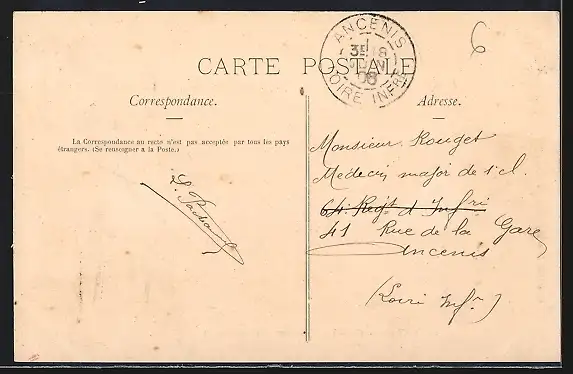 CARTE POSTALE
ANCENIS
3E 18
JUIN
08
LOIRE INFRE
6
Correspondance.
Adresse.
La Correspondance au recto n'est pas acceptée par tous les pays
étrangers. (Se renseigner à la Poste.)
Monsieur Rouget
Medecin major de 1e cl.
64e Regt d'Infrie
41 Rue de la Gare
Ancenis
(Loire Infre)